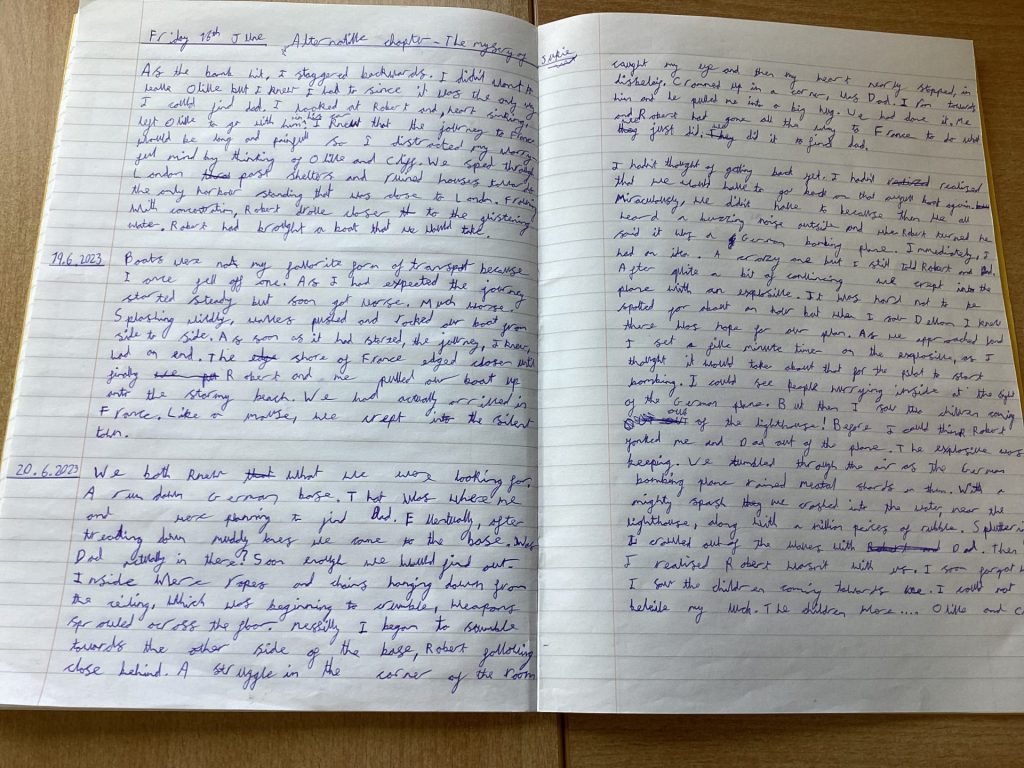 Friday 16th June Alternative chapter - The mystery of Sukie
As the bomb hit, I staggered backwards. I didn't want to
leave Olive but I knew I had to since it was the only way
I could find dad. I looked at Robert and, heart sinking,
left Olive to go with him. I knew that the journey to France
would be long and painful so I distracted my worry
full mind by thinking of Olive and Cliff. We sped through
London past shelters and ruined houses towards
the only harbour standing that was close to London. Frowning
with concentration, Robert drove closer to the glistening
water. Robert had brought a boat that we would take.
19.6.2023 Boats were not my favorite form of transpot because
I once fell off one. As I had expected the journey
started steady but soon got worse. Much worse.
Splashing wildly, waves pushed and rocked our boat from
side to side. As soon as it had started, the journey, I knew,
had an end. The shore of France edged closer until
finaly Robert and me pulled our boat up
onto the stormy beach. We had actually arrived in
France. Like a mouse, we crept into the silent
town.
20.6.2023 We both knew what we were looking for.
A run down German base. That was where me
and were planning to find Dad. Eventually, after
treading down muddy lanes we came to the base. Was
Dad actually in there? Soon enough we would find out.
Inside were ropes and chains hanging down from
the ceiling, which was beginning to crumble, weapons
sprawled across the floor. Messily I began to stumble
towards the other side of the base, Robert following
close behind. A struggle in the corner of the room
caught my eye and then my heart nearly stopped, in
disbelief. Crammed up in a corner, was Dad. I ran towards
him and he pulled me into a big hug. We had done it, me
and Robert had gone all the way to France to do what
we just did. We did it to find dad.
I hadn't thought of getting back yet. I hadn't realised
that we would have to go back on that awfull boat again.
Miraculously, we didn't have to because then we all
heard a buzzing noise outside and when Robert turned he
said it was a German bombing plane. Immediately, I
had an idea. A crazy one but I still told Robert and Dad.
After quite a bit of convincing we crept into the
plane with an explosive. It was hard not to be
spotted for about an hour but when I saw Devon I knew
there was hope for our plan. As we approached land
I set a five minute timer on the explosive, as I
thought it would take about that for the pilot to start
bombing. I could see people hurrying inside at the sight
of the German plane. But then I saw two children coming
out of the lighthouse! Before I could think Robert
yonked me and Dad out of the plane. The explosive was
beeping. We tumbled through the air as the German
bombing plane rained metal shards on them. With a
mighty spash we crashed into the water near the
lighthouse, along with a million peices of rubble.
I crawled out of the waves with Dad. Then
I realised Robert wasn't with us. I soon forgot
I saw the children coming towards me. I could not
beleive my luck. The children were.... Olive and